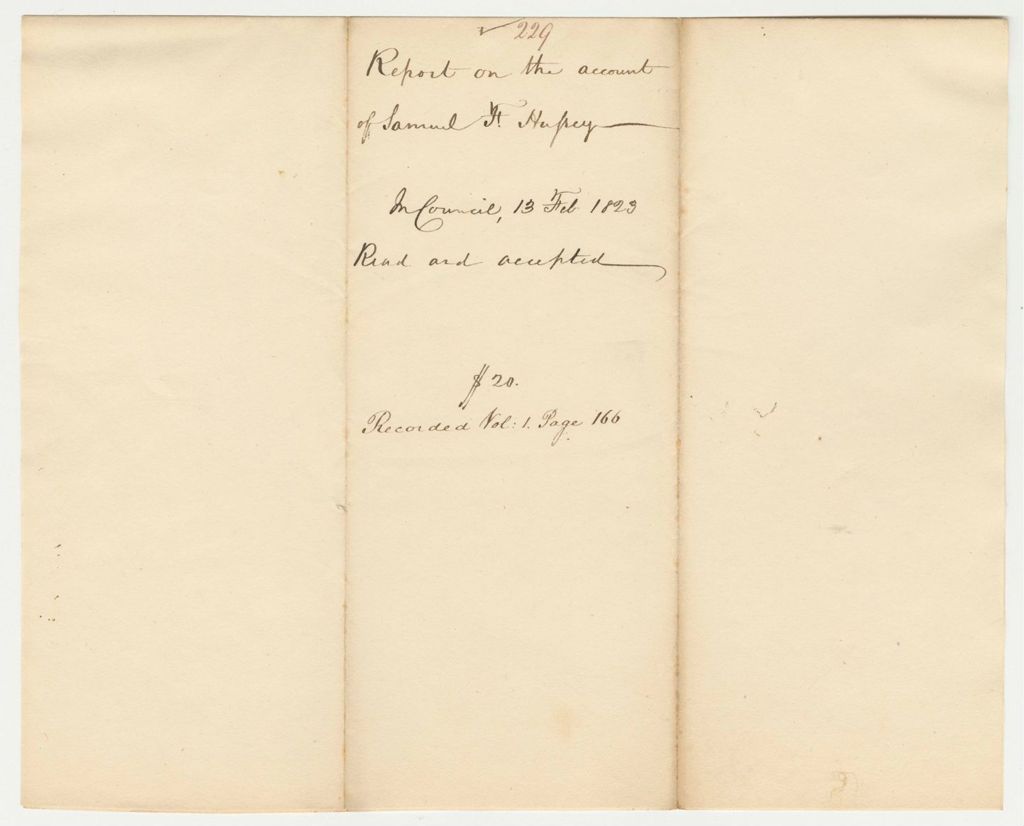 ✓ 229
Report on the account
of Samuel F. Hussey
In Council, 13 Feb 1823
Read and accepted
$20.
Recorded Vol: 1. Page 166